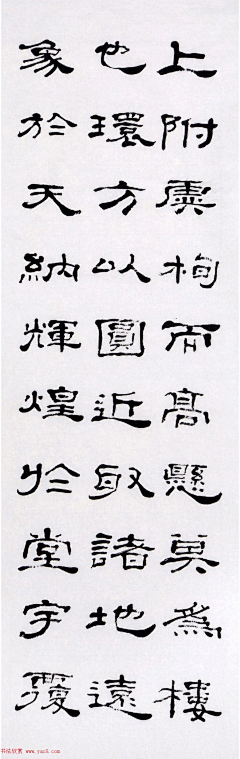 上附虡栒而高懸其為樓
也環方以圓近取諸地遠
象於天納輝煌於堂宇覆
书法欣赏 www.yac8.com